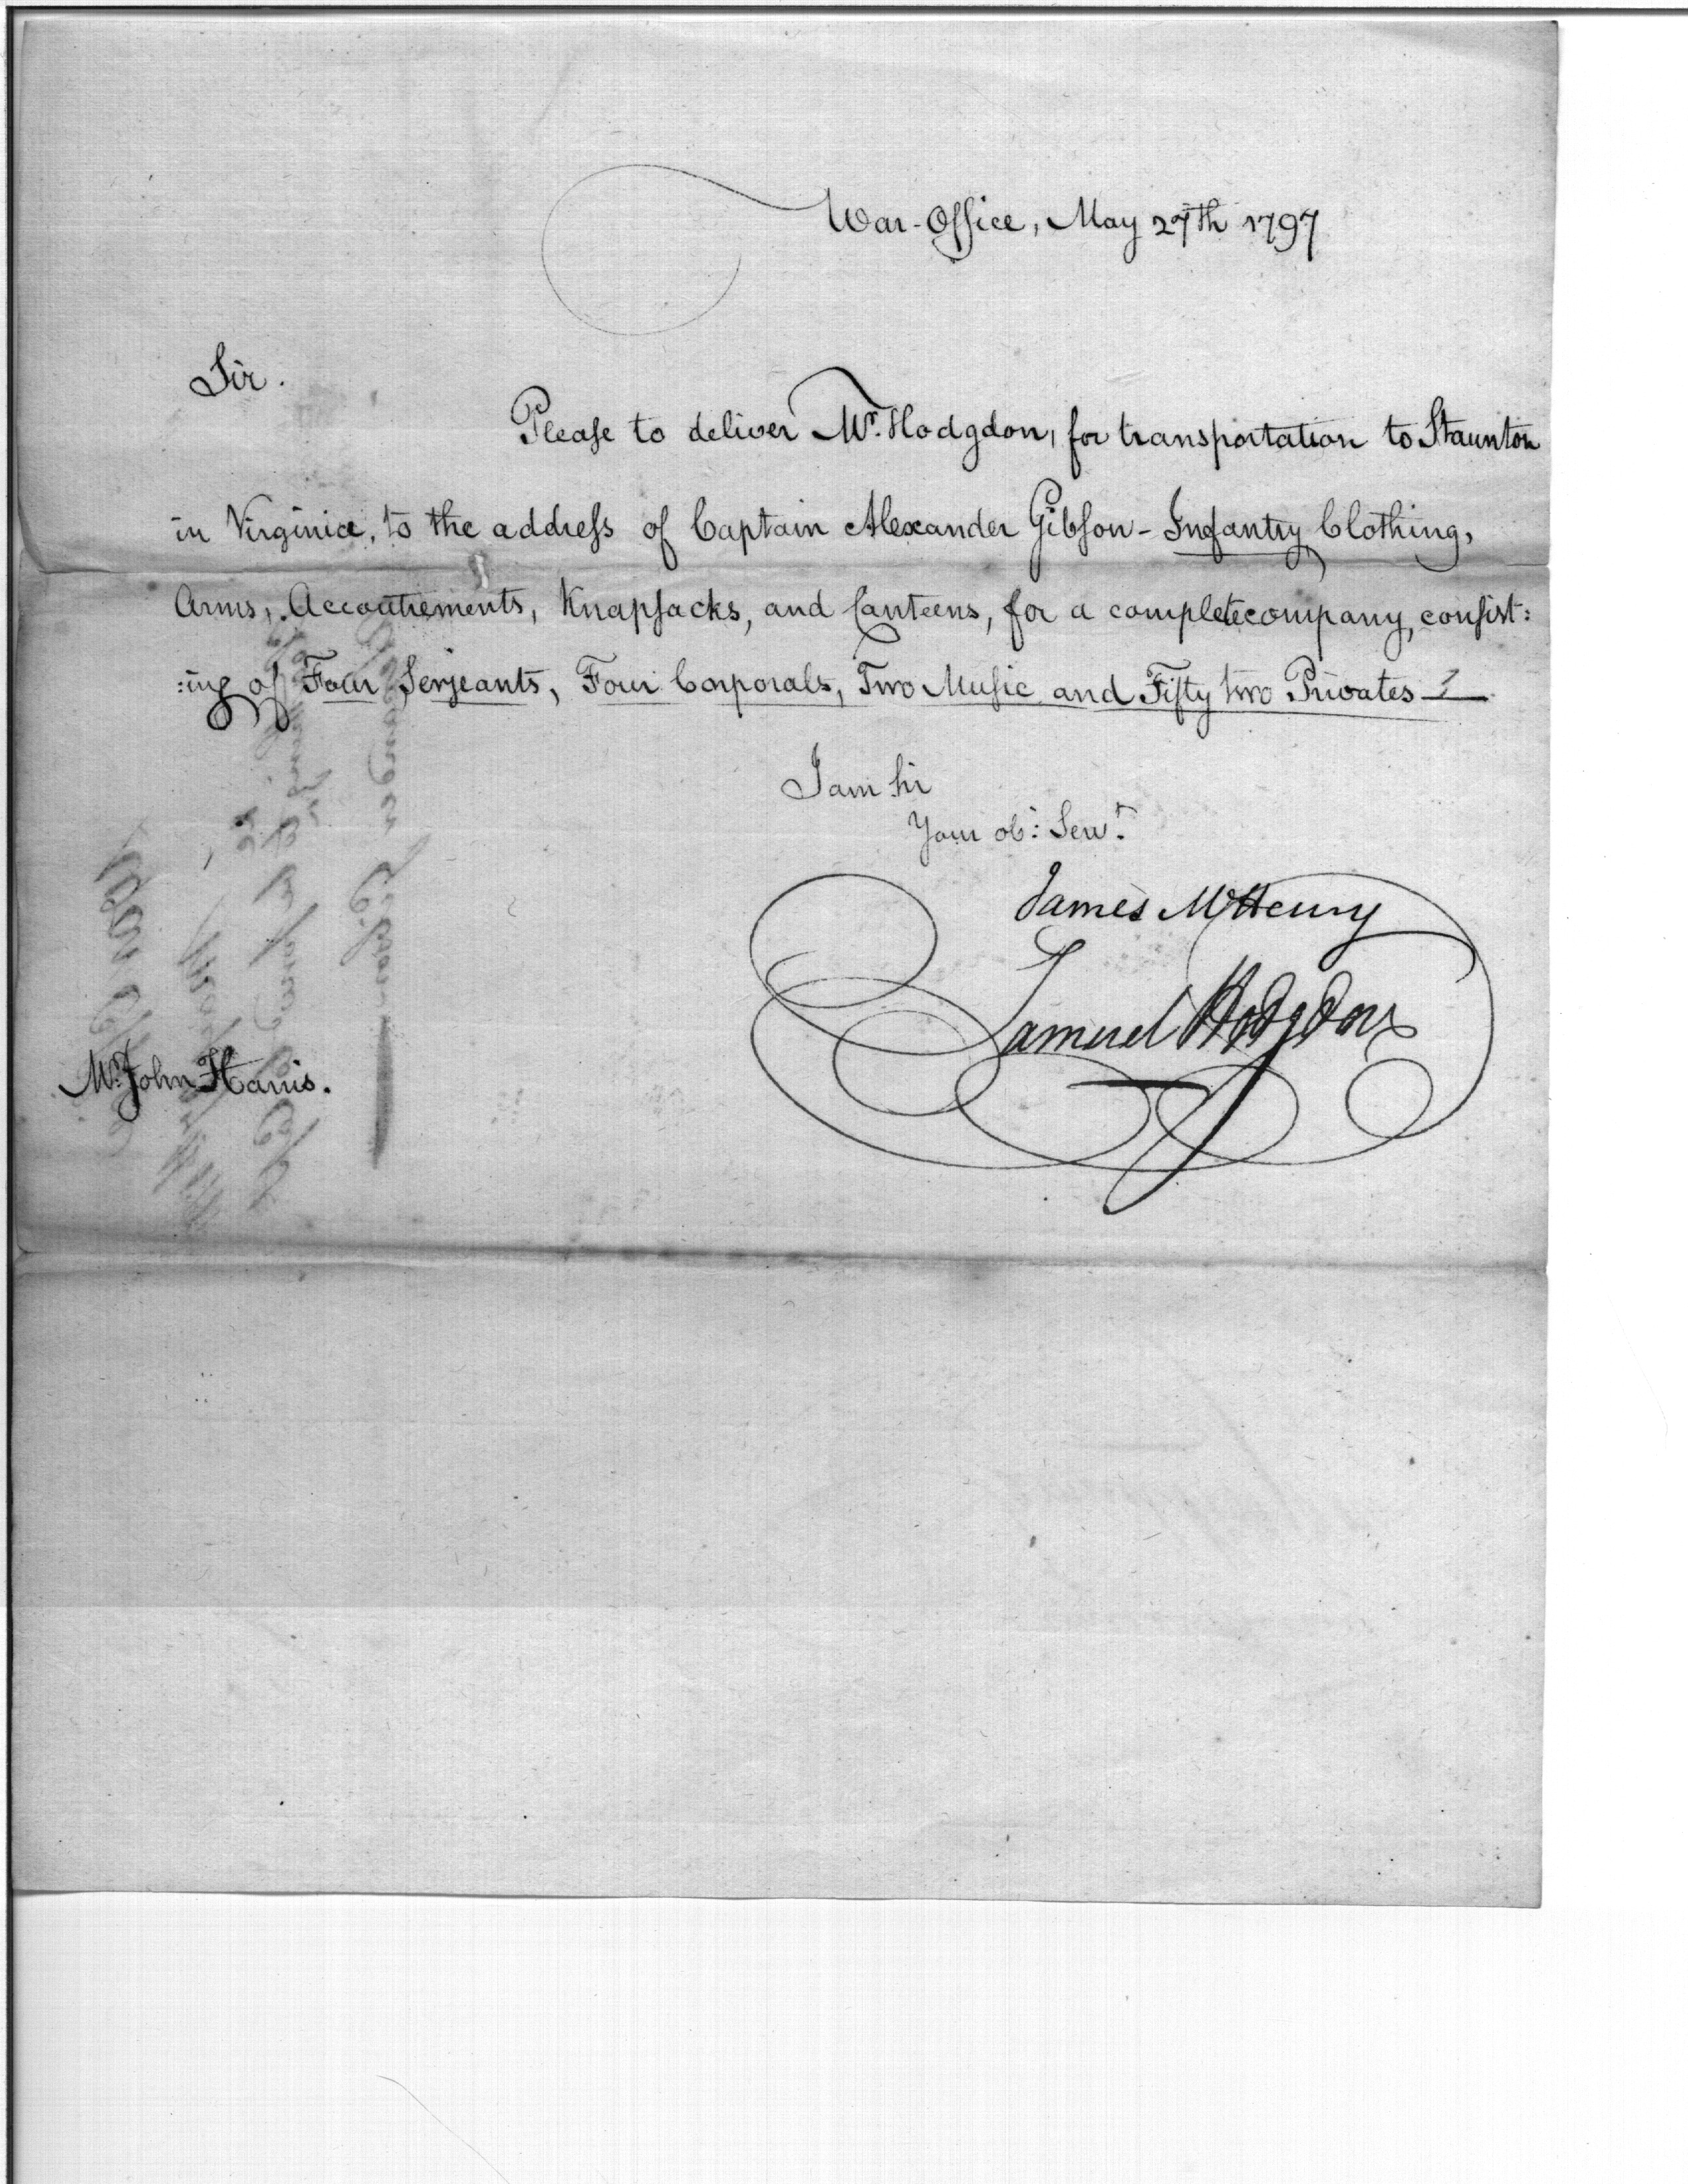 War-Office, May 27th 1797
Sir.
Please to deliver Mr. Hodgdon, for transportation to Staunton
in Virginia, to the addreſs of Captain Alexander Gibſon - Infantry Clothing,
Arms, Accoutrements, Knapſacks, and Canteens, for a complete company, conſist:
:ing of Four Serjeants, Four Corporals, Two Muſic and Fifty two Privates
I am Sir
Your obt: Servt.
James McHenry
Samuel Hodgdon
Mr. John Harris.